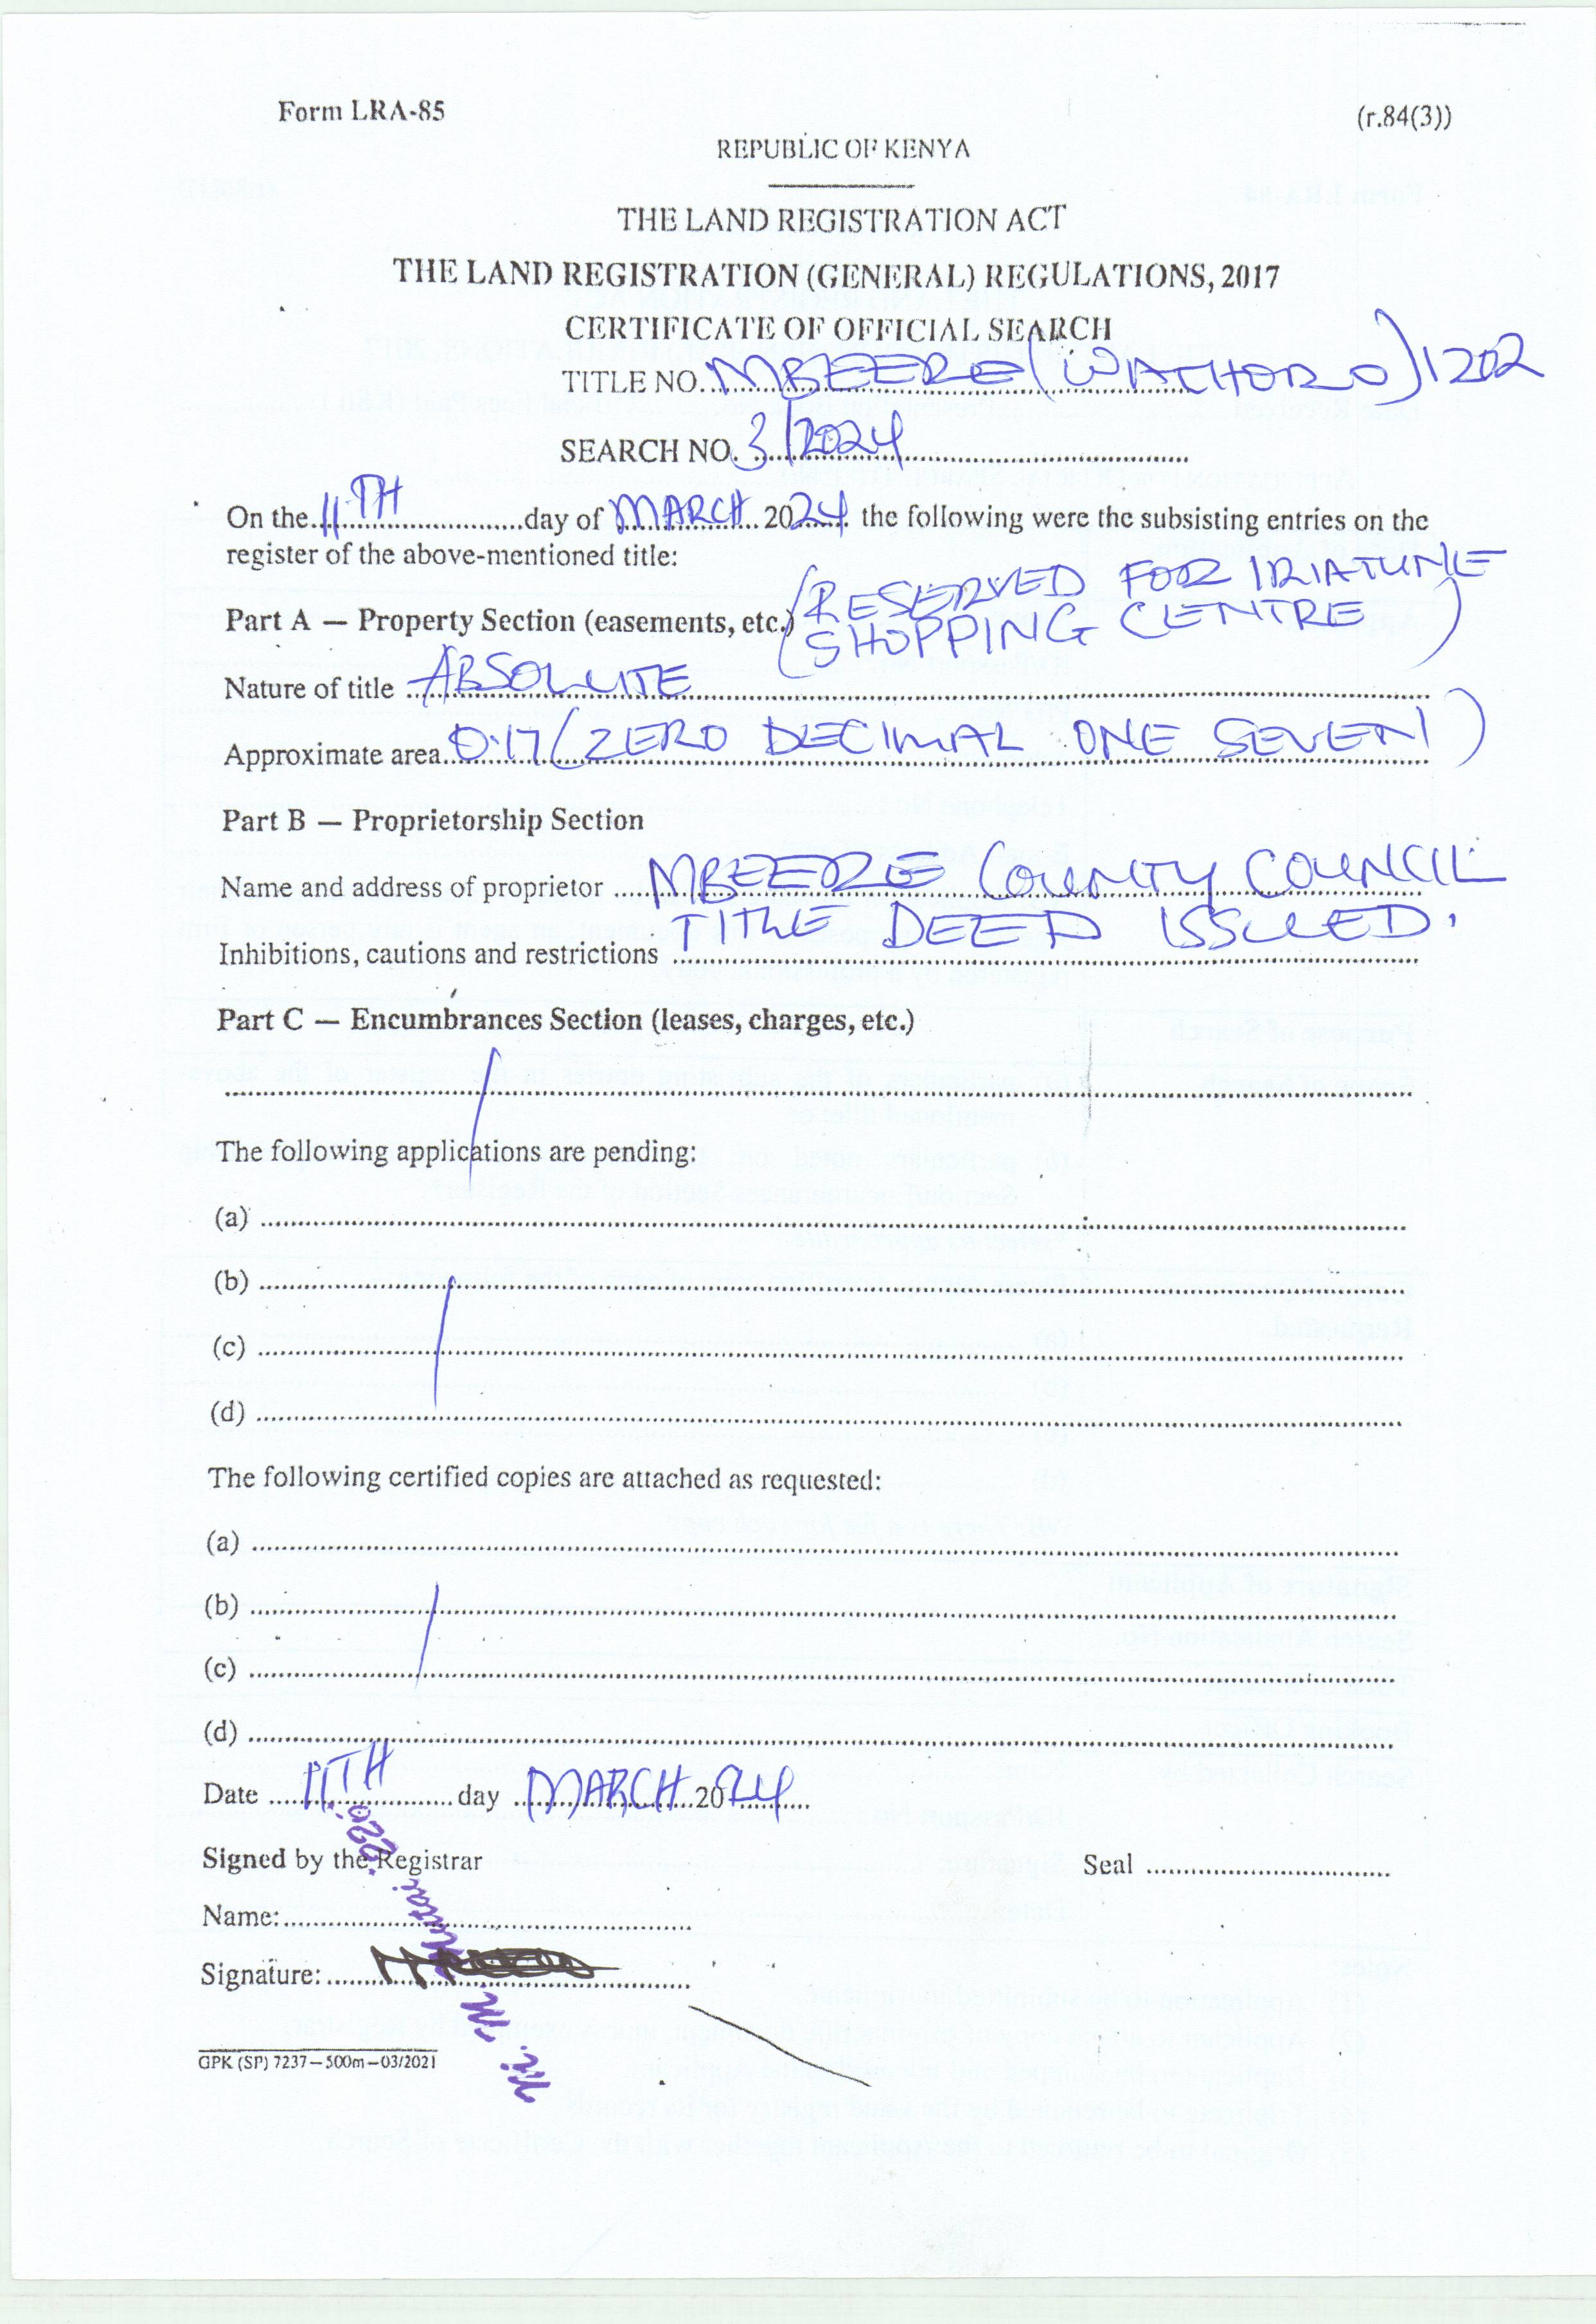 Form LRA-85 (r.84(3))
REPUBLIC OF KENYA
THE LAND REGISTRATION ACT
THE LAND REGISTRATION (GENERAL) REGULATIONS, 2017
CERTIFICATE OF OFFICIAL SEARCH
TITLE NO. MBEERE (WACHORO) 1202
SEARCH NO. 3/2024
On the 11TH day of MARCH 2024 the following were the subsisting entries on the
register of the above-mentioned title:
Part A — Property Section (easements, etc.) (RESERVED FOR IRIATUNE
SHOPPING CENTRE)
Nature of title ABSOLUTE
Approximate area 0.17 (ZERO DECIMAL ONE SEVEN)
Part B — Proprietorship Section
Name and address of proprietor MBEERE COUNTY COUNCIL
TITLE DEED ISSUED.
Inhibitions, cautions and restrictions
Part C — Encumbrances Section (leases, charges, etc.)
The following applications are pending:
(a)
(b)
(c)
(d)
The following certified copies are attached as requested:
(a)
(b)
(c)
(d)
Date 11TH day MARCH 2024
Signed by the Registrar Seal
Name:
Signature:
GPK (SP) 7237—500m—03/2021